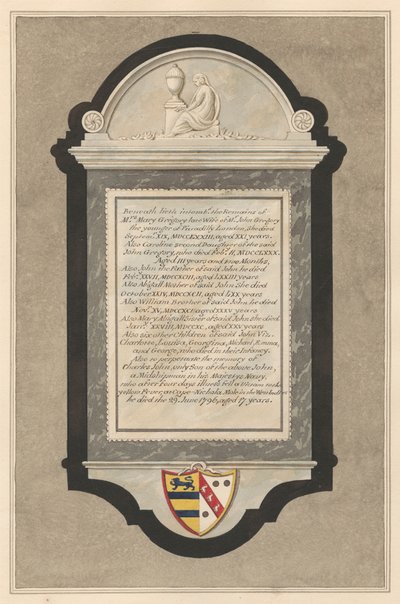 Beneath lieth intomb'd the Remains of
Mrs. Mary Gregory late Wife of Mr. John Gregory
the younger of Piccadilly London, she died
Septemr. XIX, MDCCLXXXIII, aged XXI years.
Also Caroline second Daughter of the said
John Gregory, who died Febry. II, MDCCLXXX.
Aged III years and nine Months,
Also John the Father of said John he died
Feby. XXVII, MDCCXCIII, aged LXXIII years
Also Abigall Mother of said John She died
October XXIV, MDCCXCII, aged LXX years
Also William Brother of said John he died
Novr. XV, MDCCXCII aged XXXV years
Also Mary Abigall Sister of said John she died
Janry. XXVIII, MDCCXC, aged XXX years
Also six other Children of said John Viz.
Charlotte, Louisa, Georgina, Michael, Emma,
and George, who died in their Infancy.
Also to perpetuate the memory of
Charles John, only Son of the above John,
a Midshipman in his Majestys Navy
who after four days illness fell a Victim to the
yellow Fever, at Cape Nichola Mole in the West Indies
he died the 29. June 1796, aged 17, years.